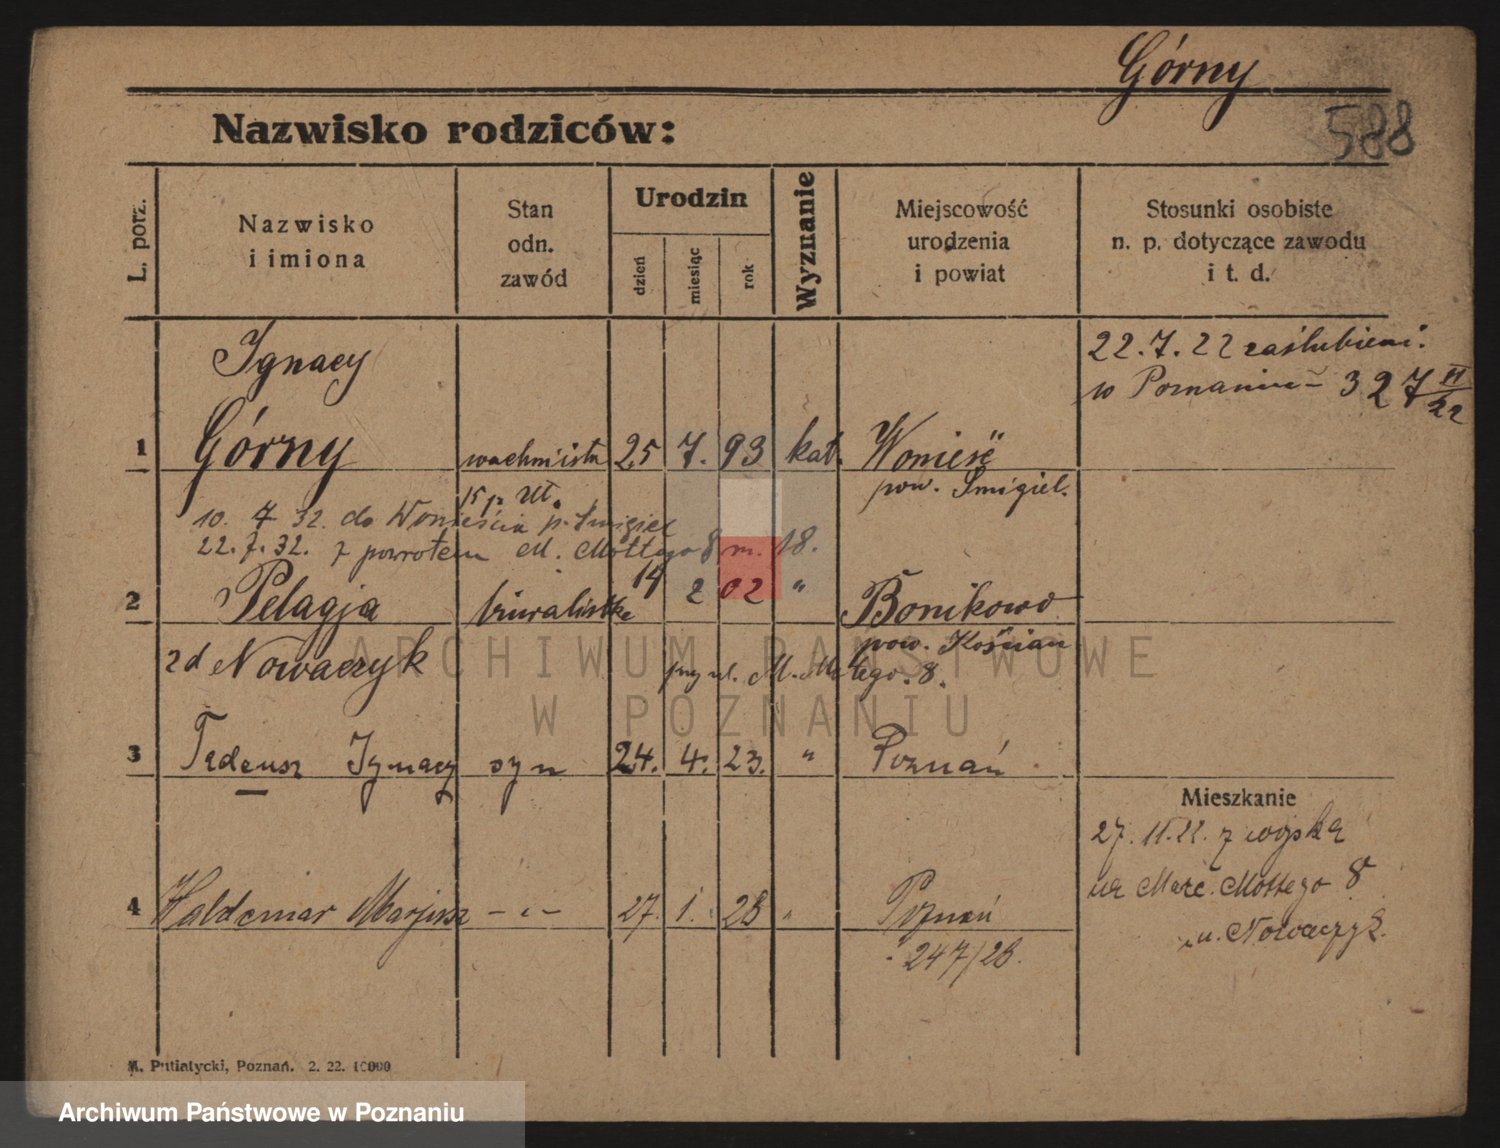 Górny
588
Nazwisko rodziców:
L. porz.
Nazwisko i imiona
Stan odn. zawód
Urodzin
dzień
miesiąc
rok
Wyznanie
Miejscowość urodzenia i powiat
Stosunki osobiste n. p. dotyczące zawodu i t. d.
22.7.22 zaślubieni
w Poznaniu - 327 VI/22
Ignacy
1 Górny wachmistrz 25 7. 93 kat. Wonieść
15 p. Uł. pow. Śmigiel.
10. 7 32. do Wonieścia p. Śmigiel
22.7.32. z powrotem M. Mottego 8 m. 18.
2 Pelagja biuralistka 14 2 02 " Bonikowo
pow. Kościan
zd Nowaczyk przy ul. M. Mottego 8.
3 Tadeusz Ignacy syn 24. 4. 23. " Poznań
Mieszkanie
27. 11. 22. z wojska
na Marc. Mottego 8
u. Nowaczyk.
4 Waldemar Marjusz - " - 27. 1. 28 " Poznań
247/28.
M. Putiatycki, Poznań. 2. 22. 10000
ARCHIWUM PAŃSTWOWE
W POZNANIU
Archiwum Państwowe w Poznaniu